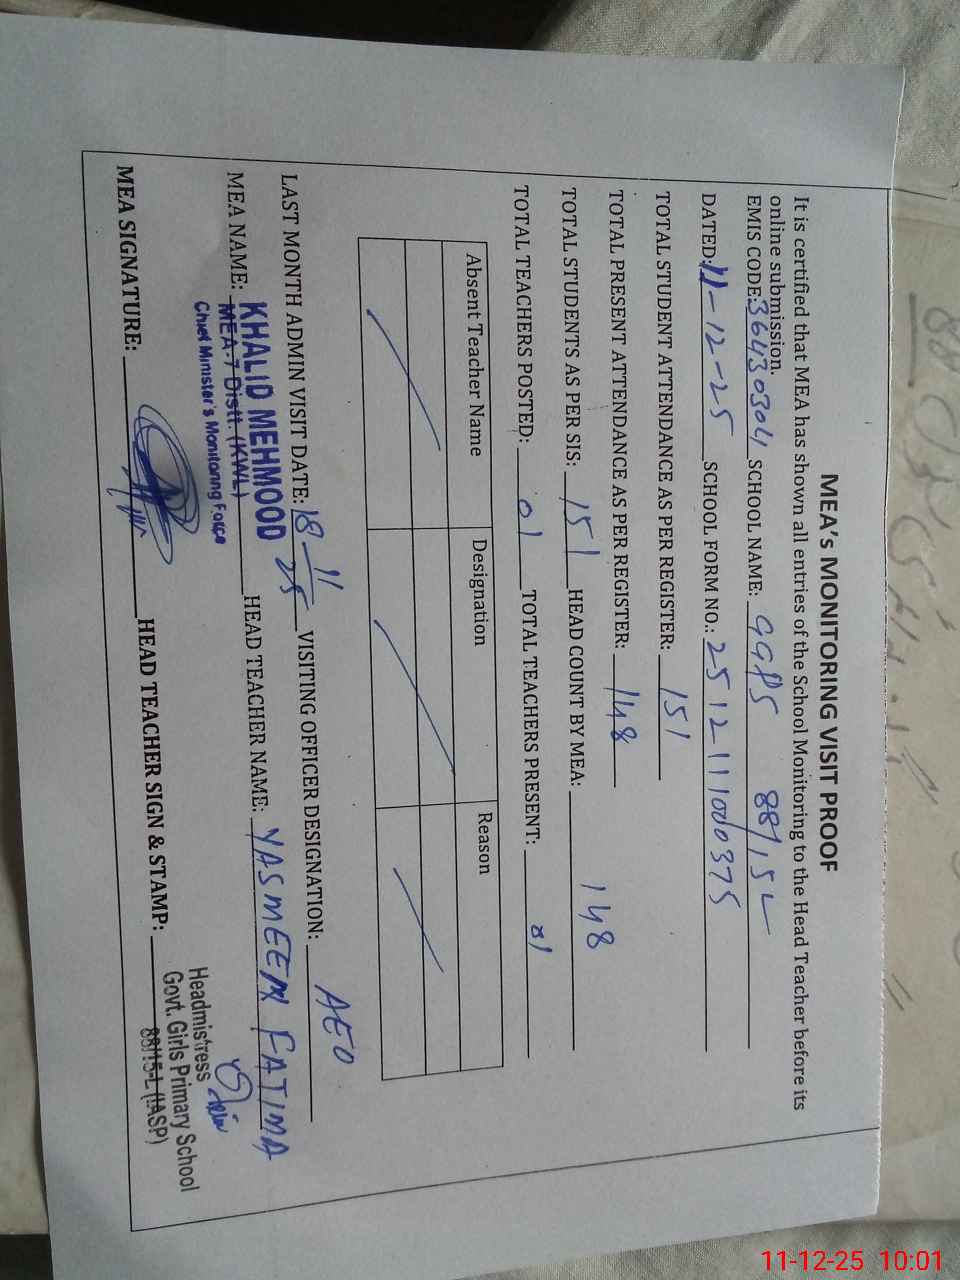 MEA's MONITORING VISIT PROOF
It is certified that MEA has shown all entries of the School Monitoring to the Head Teacher before its
online submission.
EMIS CODE: 36430304 SCHOOL NAME: GGPS 88/15L
DATED: 11-12-25 SCHOOL FORM NO.: 251211100375
TOTAL STUDENT ATTENDANCE AS PER REGISTER: 151
TOTAL PRESENT ATTENDANCE AS PER REGISTER: 148
TOTAL STUDENTS AS PER SIS: 151 HEAD COUNT BY MEA: 148
TOTAL TEACHERS POSTED: 01 TOTAL TEACHERS PRESENT: 01
Absent Teacher Name Designation Reason
LAST MONTH ADMIN VISIT DATE: 18-11-25 VISITING OFFICER DESIGNATION: AEO
MEA NAME: KHALID MEHMOOD HEAD TEACHER NAME: YASMEEN FATIMA
MEA-7 Distt. (KWL)
Chief Minister's Monitoring Force
MEA SIGNATURE: HEAD TEACHER SIGN & STAMP:
Headmistress
Govt. Girls Primary School
88/15-L (IASP)
11-12-25 10:01